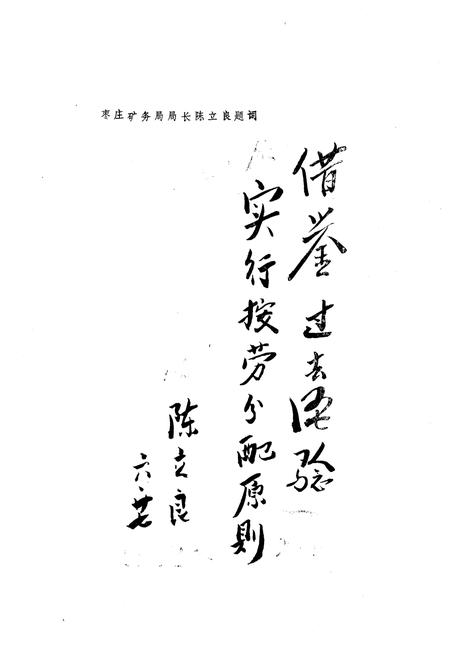 枣庄矿务局局长陈立良题词
借鉴过去经验
实行按劳分配原则
陈立良
六、廿七